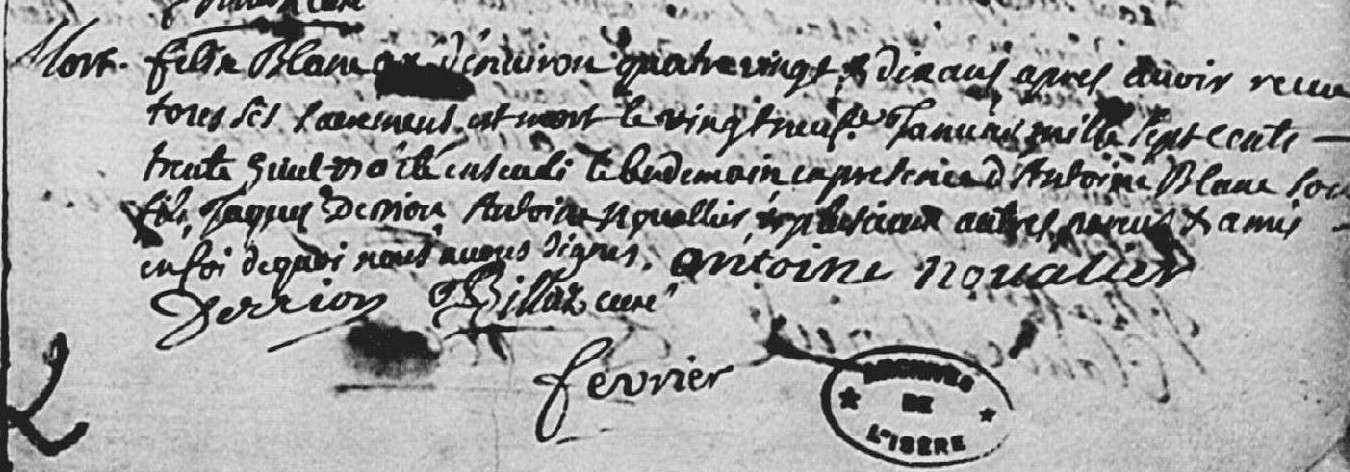 Mort. felix Blanc d'environ quatre vingt & dix ans apres avoir receu
tous ses sacrements est mort le vingt neufe Janvier mille sept cents
trente huit et a été enseveli le lendemain en presence d'Antoine Blanc son
fils, Jaques Derrion Antoine Novallier, et plusieurs autres parens & amis
en foi dequoi nous avons signés. antoine novallier
Derrion Billiaz curé
fevrier
ARCHIVES
DE
L'ISERE